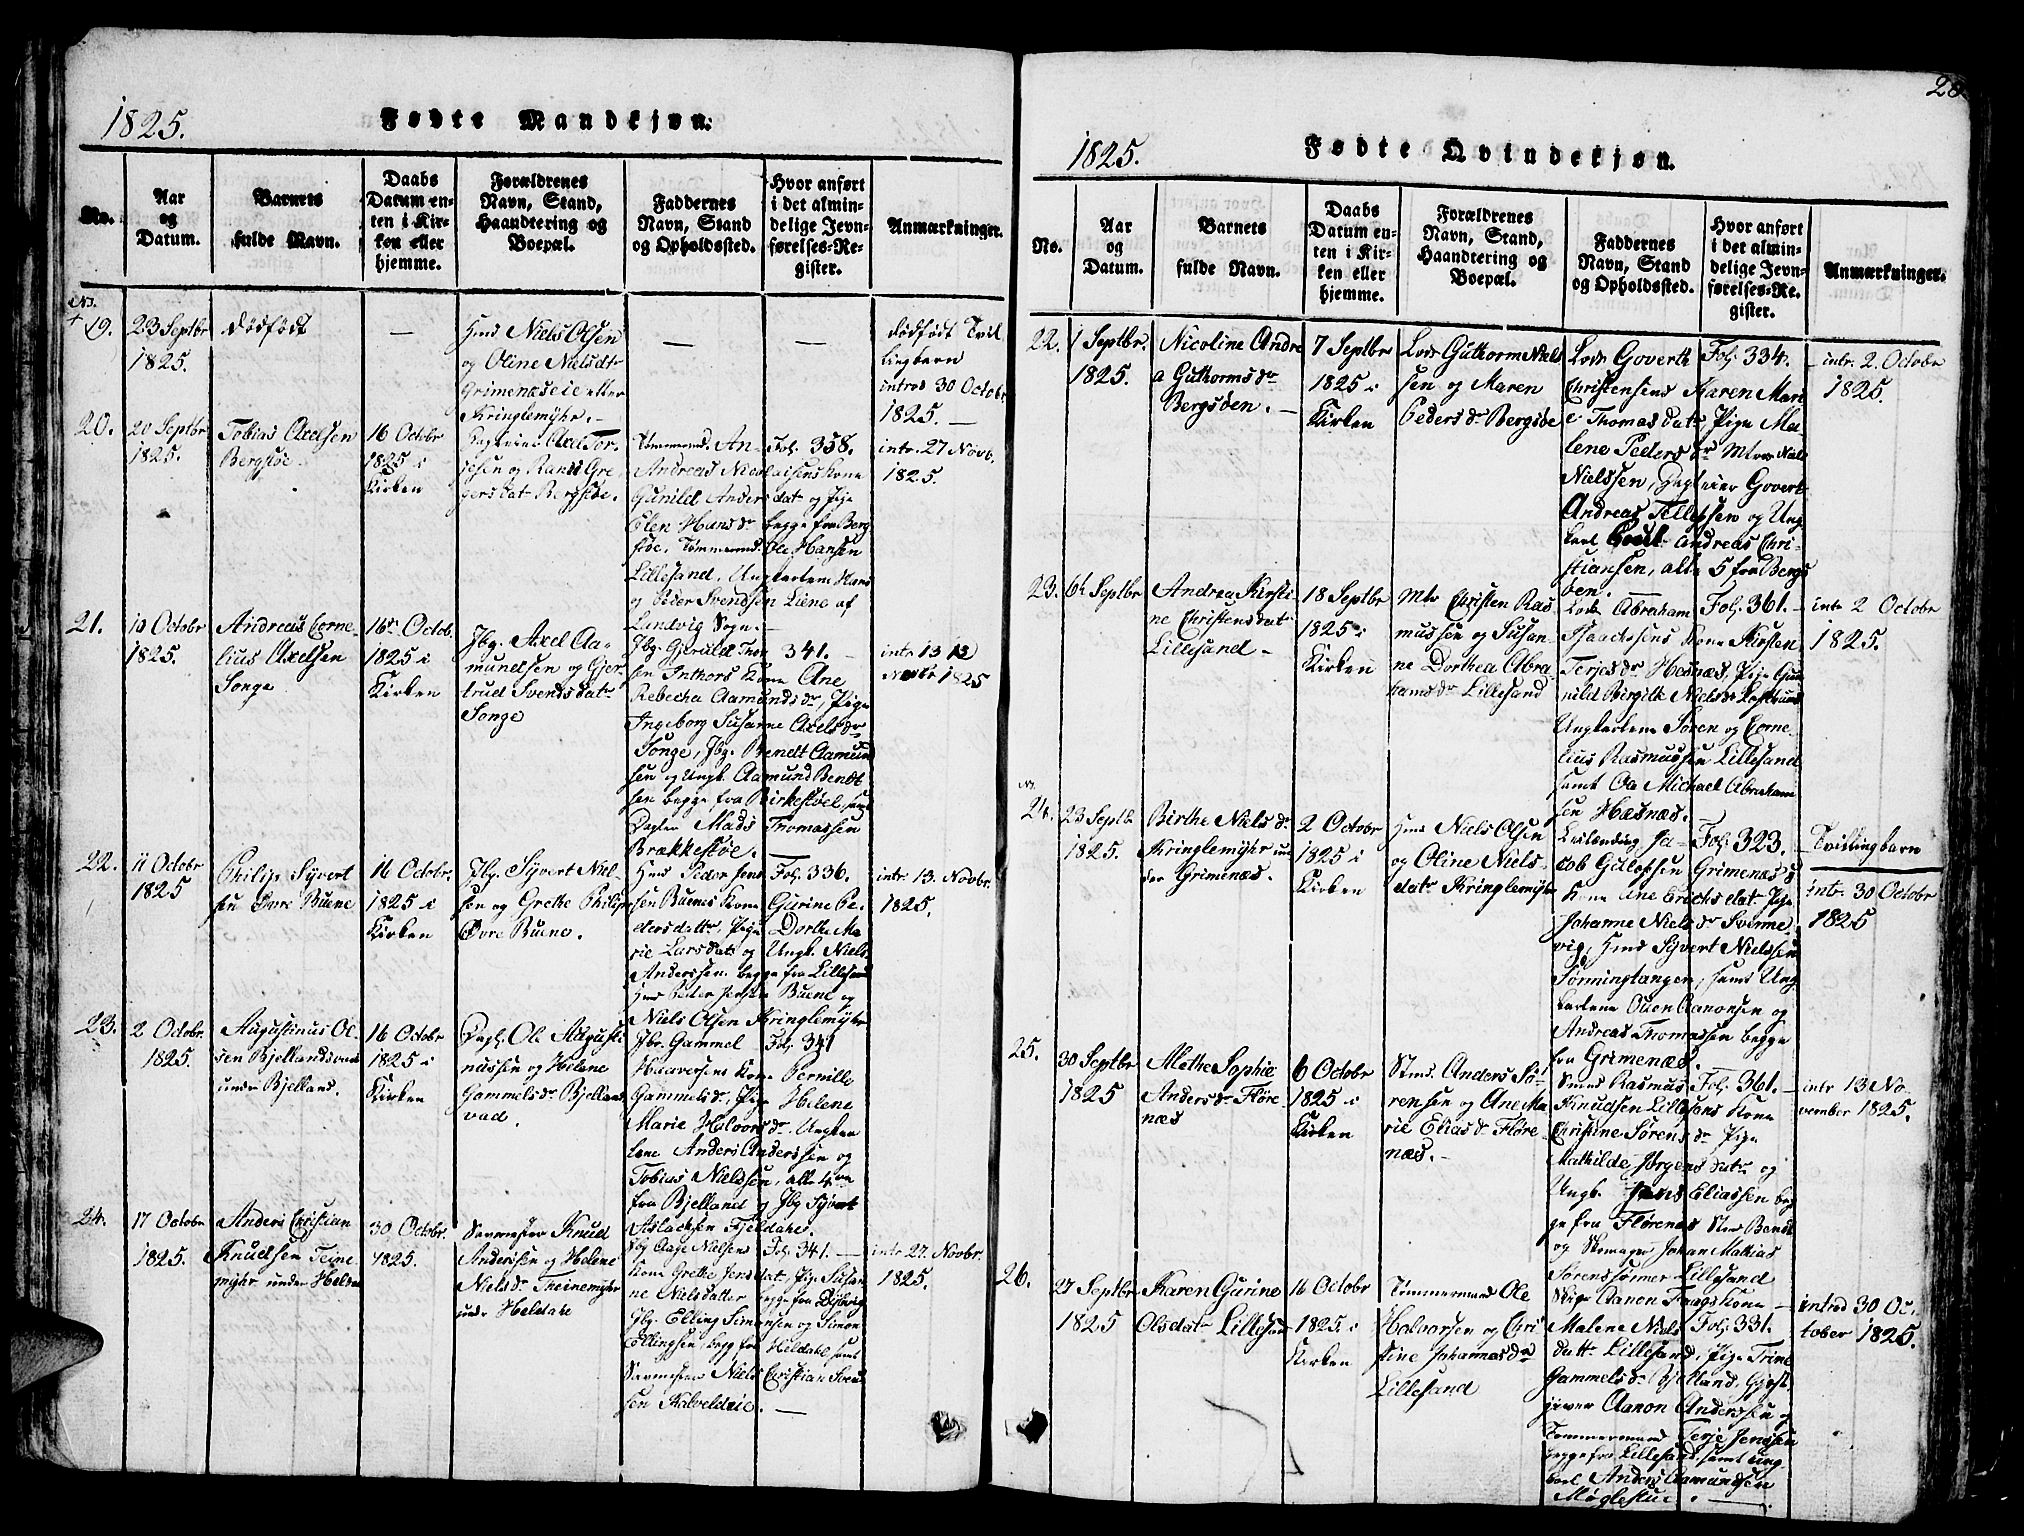 1825. Fødte Mandkjøn.
No.
Aar
og
Datum.
Barnets
fulde Navn.
Daabs
Datum en-
ten i Kir-
ken eller
hjemme.
Forældrenes
Navn, Stand,
Haandtering og
Boepæl.
Faddernes
Navn, Stand
og Opholdssted.
Hvor anført
i det almin-
delige Jevn-
førelses-Re-
gister.
Anmærkninger.
19.
23 Septbr
1825.
dödfödt
—
Niels Olsen
og Oline Nielsdtr
Grimenæseie eller
Kringlemyhr. —
—
—
dödfödt Tvil
lingbarn
introd 30 Octobr
1825. —
20.
20 Septbr
1825.
Tobias Axelsen
Bergsöe.
16 Octobr
1825 i
Kirken
Axel Tor-
jesen og Randi Gre-
gersdatr Bergsöe.
Tömmermd. An-
Andreas Nicolaisens Kone
Gunild Andersdatr og Pige
Elen Hansdr begge fra Berg
söe, Tömmermd. Ole Hansen
Lillesand, Ungkarlene Hans
og Peder Svendsen Liene af
Landvig Sogn. —
Fol. 358.
intr. 27 Novb.
1825.
21.
10 Octobr
1825.
Andreas Corne-
lius Axelsen
Songe
16de Octob.
1825 i
Kirken
Jbg. Axel Aa-
mundsen og Gjer-
trud Svendsdatr
Songe
Jbg. Gjeruld Thor
sen Inthors Kone Ane
Rebecha Aamundsdr, Pige
Ingeborg Susanne Axelsdr
Songe, Jbg. Bendt Aamund
sen og Ungk. Aamund Bendt
sen begge fra Birkestöel, samt
Dagleier Mads Thomassen
Brækkestöe.
341. —
intr. 13
Novbr 1825
22.
11 Octobr
1825
Philip Syvert
sen Övre Buene
16 Octobr.
1825 i
Kirken
Jbg. Syvert Niel-
sen og Grethe Philips
Övre Buene.
Hmd Peder Jens
sen Buenes Kone Gurine Pe-
dersdattr, Pige Dorthe Ma-
rie Larsdatr og Ungk. Niels
Anderssen begge fra Lillesand
Hmd Peder Jensen Buene og
Niels Olsen Kringlemyhr
Fol. 336.
intr. 13. Novbr.
1825.
23.
2 Octobr.
1825.
Augustinus Ol-
sen Bjellandsvad
under Bjelland.
16 Octobr
1825 i
Kirken
Dagl. Ole Augusti
nussen og Helene
Gammelsdr Bjellands
vad.
Jbr. Gammel
Haavorsens Kone Pernille
Gammelsdr, Pige Helene
Marie Halvorsdr. Ungkar
lene Anders Anderssen og
Tobias Nielssen, alle 4re
fra Bjelland og Jbg Syvert
Aslachsen Fjeldahl.
Fol. 341
24.
17 Octobr
1825.
Anders Christian
Knudsen Teine
myhr under Heldal
30 Octobr.
1825.
Savmester Knud
Anderssen og Helene
Nielsdr Theinemyhr
under Heldahl
Jbg Aage Nielsens
Kone Grethe Jensdat, Pige Susan
ne Nielsdatter begge fra
Jbg. Elling Simonsen og Simon
Ellingsen, begge fra Heldahl samt
Savmester Niels Christian Svend
sen Kalveldeie. —
Fol. 341. —
intr 27. Novbr.
1825.
28
1825. Fødte Qvindekjøn.
No.
Aar
og
Datum.
Barnets
fulde Navn.
Daabs
Datum en-
ten i Kir-
ken eller
hjemme.
Forældrenes
Navn, Stand,
Haandtering og
Boepæl.
Faddernes
Navn, Stand
og Opholdssted.
Hvor anført
i det almin-
delige Jevn-
førelses-Re-
gister.
Anmærkninger.
22.
1 Septbr.
1825.
Nicoline Andre
a Guthormsdr
Bergsöen. —
7 Septbr
1825 i
Kirken
Lods Guthorm Niels
sen og Maren
Pedersdr Bergsöe
Lods Goverth
Christensens Karen Mari
e Thomasdatr Pige Ma-
lene Pedersdr Mtros Niels
Nielssen, Dagleier Govert
Andreas Tellefsen og Ung
karl Andreas Chri-
stiansen, alle 5 fra Bergs
öen. —
Fol. 334.
intr. 2 Octobr
1825.
23.
6te Septbr
Andrea Kirsti-
ne Christensdatr
Lillesand —
18 Septbr
1825 i
Kirken
Mtr Christen Ras
mussen og Susan-
ne Dorthea Abra-
hamsdr Lillesand
Lods Abraham
Isaachsens Kone Kirsten
Terjesdr Hesnæs, Pige Gun
nild Birgitte Nielsdr
Ungkarlene Sören og Corne-
lius Rasmussen Lillesand
samt Ole Michael Abraham
sen Hæsnæs.
Fol. 361. —
intr 2 Octobr
1825.
24.
23 Septb
1825.
Birthe Nielsdr
Kringlemyhr un
der Grimenæs.
2 Octobr
1825 i
Kirken
Hmd Niels Olsen
og Oline Niels-
datr Kringlemyhr
Ja-
cob Gulovsen Grimenæs's
Kone Ane Erichsdat. Pige
Johanne Nielsdr Svenne-
vig, Hmd Syvert Nielssen
Sönningtangen, samt Ung
karlene Ouen Aanonsen og
Andreas Thomassen begge
fra Grimenæs.
Fol. 323.
Tvillingbarn
intr. 30 Octobr
1825
25.
30 Septbr
1825
Methe Sophie
Andersdr Flöre-
næs
6 Octobr
1825 i
Kirken
Anders Sö-
rensen og Ane Ma-
rie Eliasdr Flöre-
næs. —
Rasmus
Knudsen Lillesands Kone
Christine Sörensdr Pige
Mathilde Jörgensdatr og
Ungk. Jens Eliassen beg
ge fra Flörenæs Bendt
og Skomager Johan Mathias
Sörenssönner Lillesand
Fol. 361. —
intr 13 No
vember 1825.
26.
27 Septbr
1825
Karen Gurine
Olsdatr Lillesand
16 Octobr
1825. i
Kirken
Tömmermand Ole
Halvorsen og Chri
stine Johannesdr
Lillesand
Aanon Faagts Kone
Malene Niels
datt. Lillesand, Pige Trine
Gammelsdr Bjelland, Gjest
giver Aanon Anderssen og
Tömmermand Terje Jenssen
begge fra Lillesand, samt Ung
karl Anders Aamundsen
Möglestue. —
Fol. 331.
introd 30 Oc-
tober 1825.